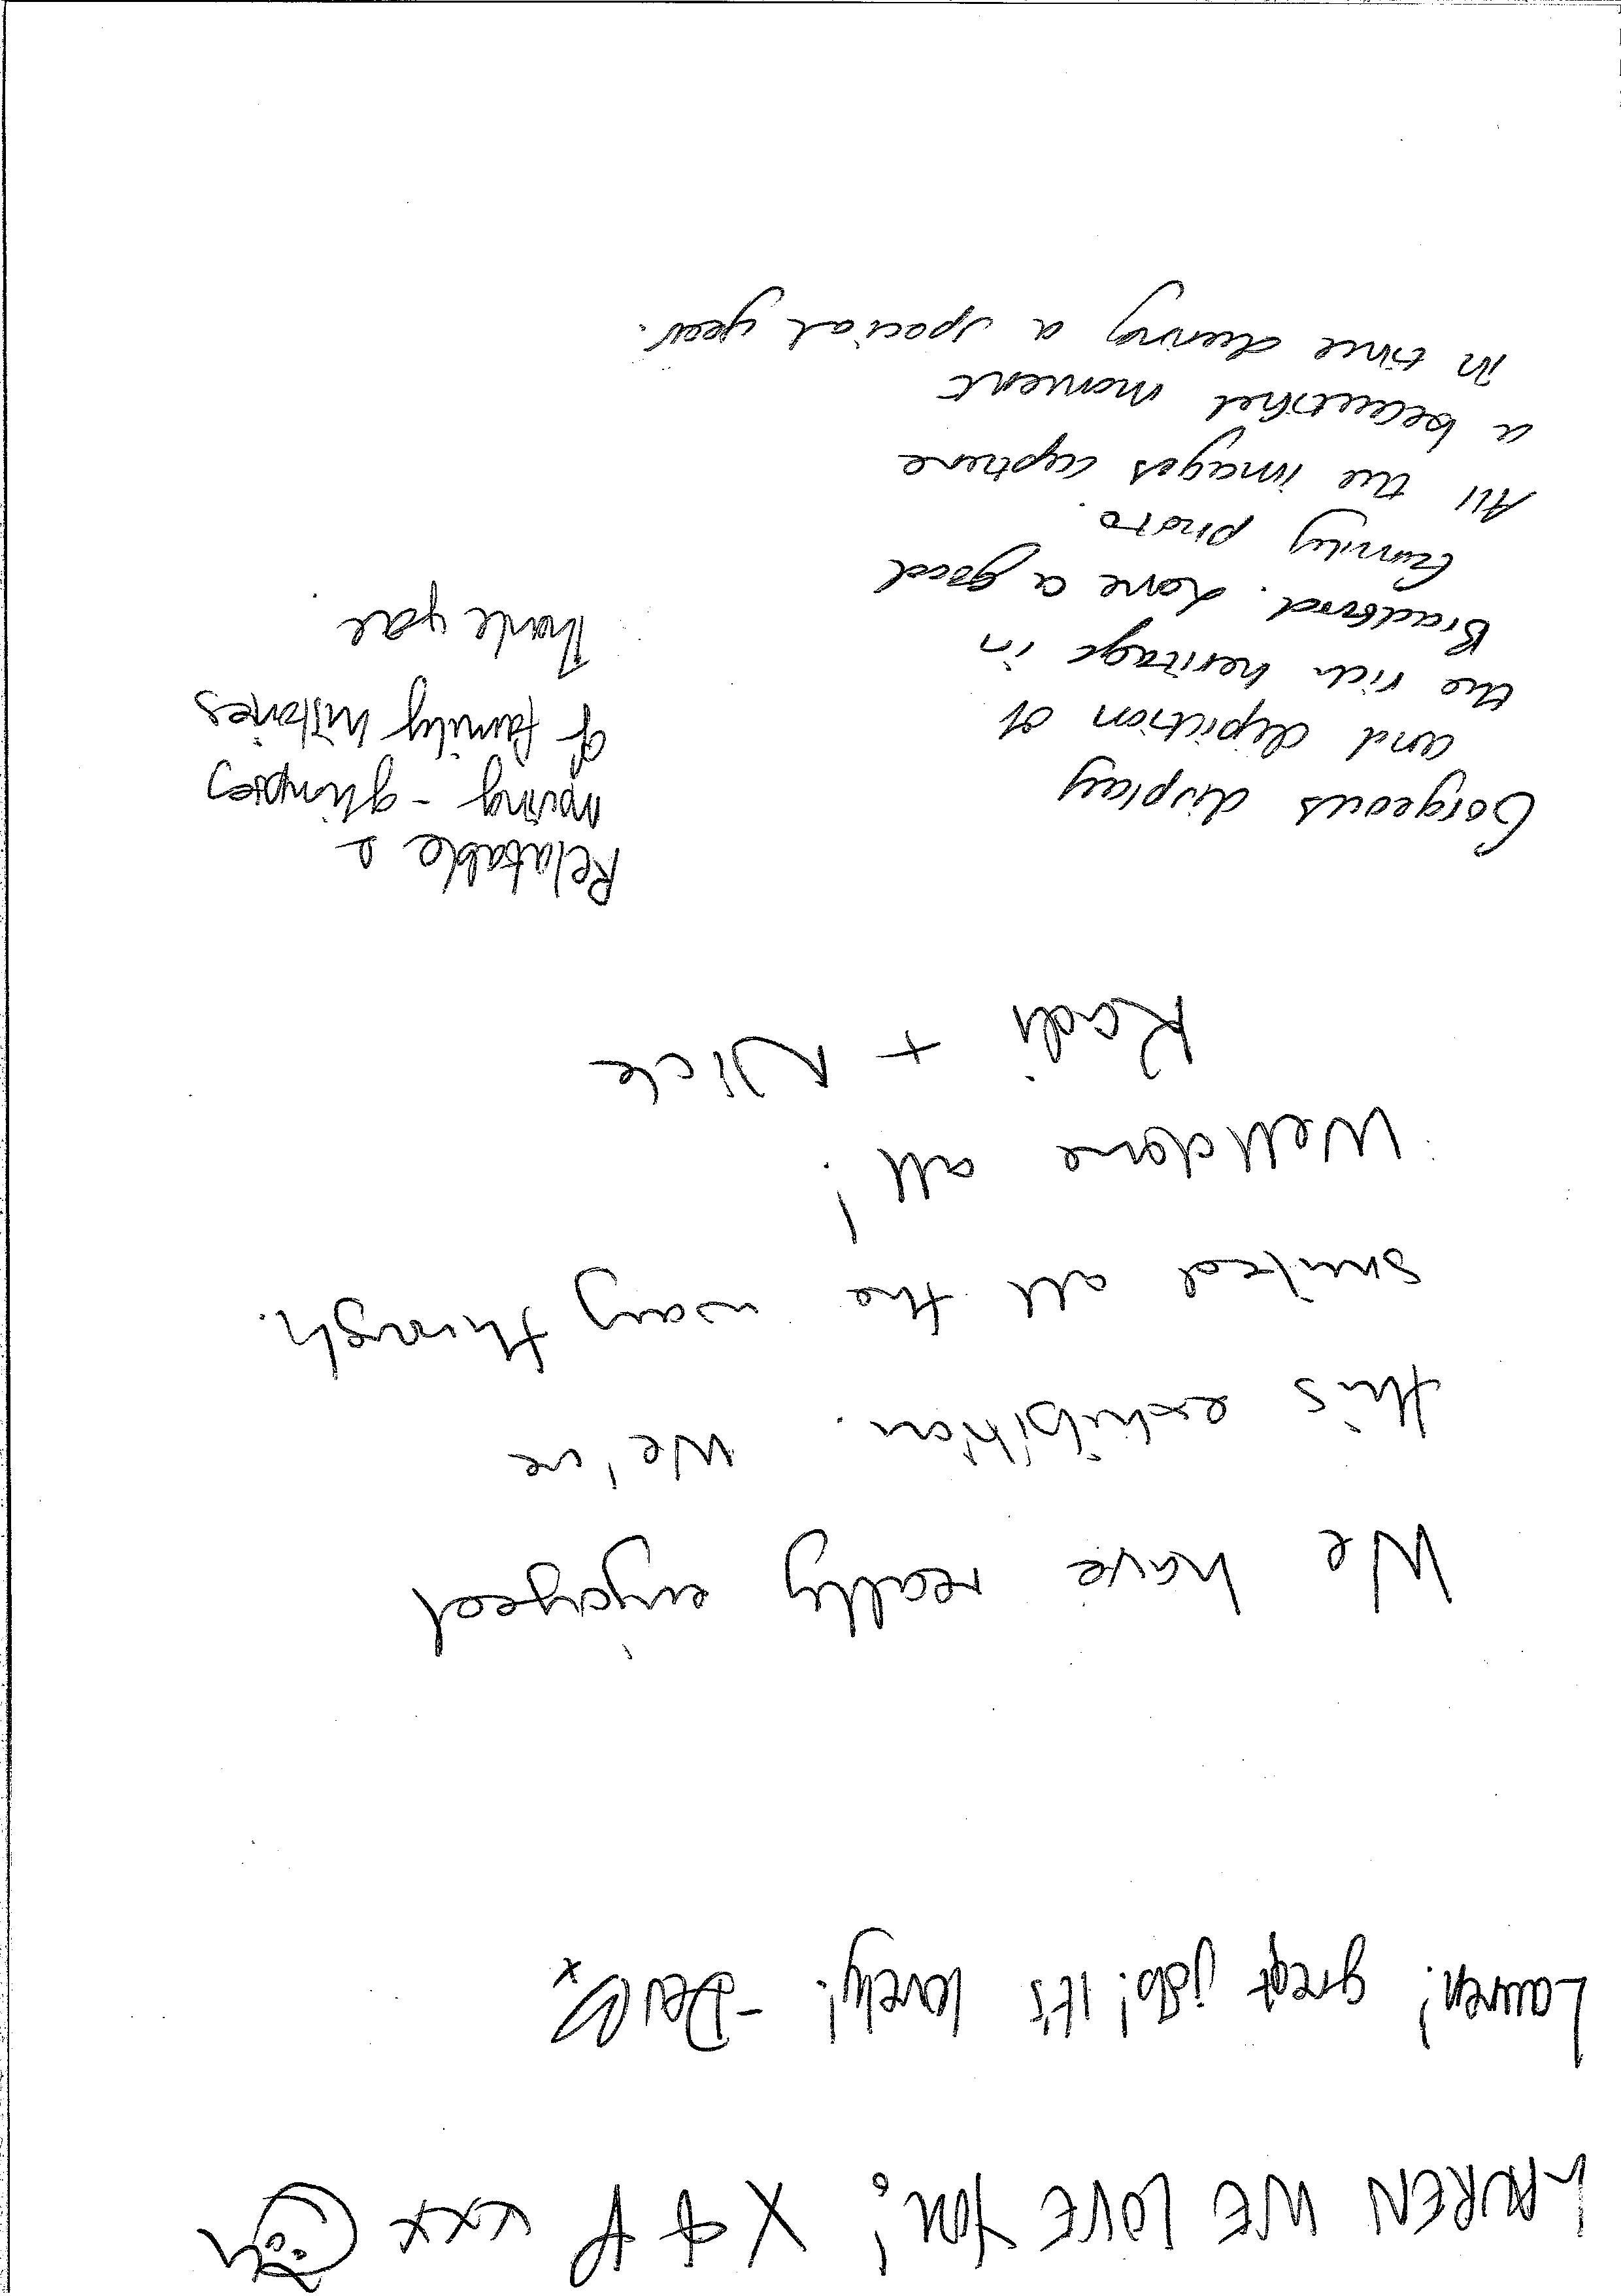 LAUREN WE LOVE YOU! X & P xxx
Lauren! great job! It's lovely! - Dev x
We have really enjoyed
this exhibition. We've
smiled all the way through.
Well done all!
Kadi + Nick
Gorgeous display
and depiction of
the rich heritage in
Bradford. Love a good
family photo.
All the images capture
a beautiful moment
in time during a special year.
Relatable &
moving - glimpses
of family histories
Thank you